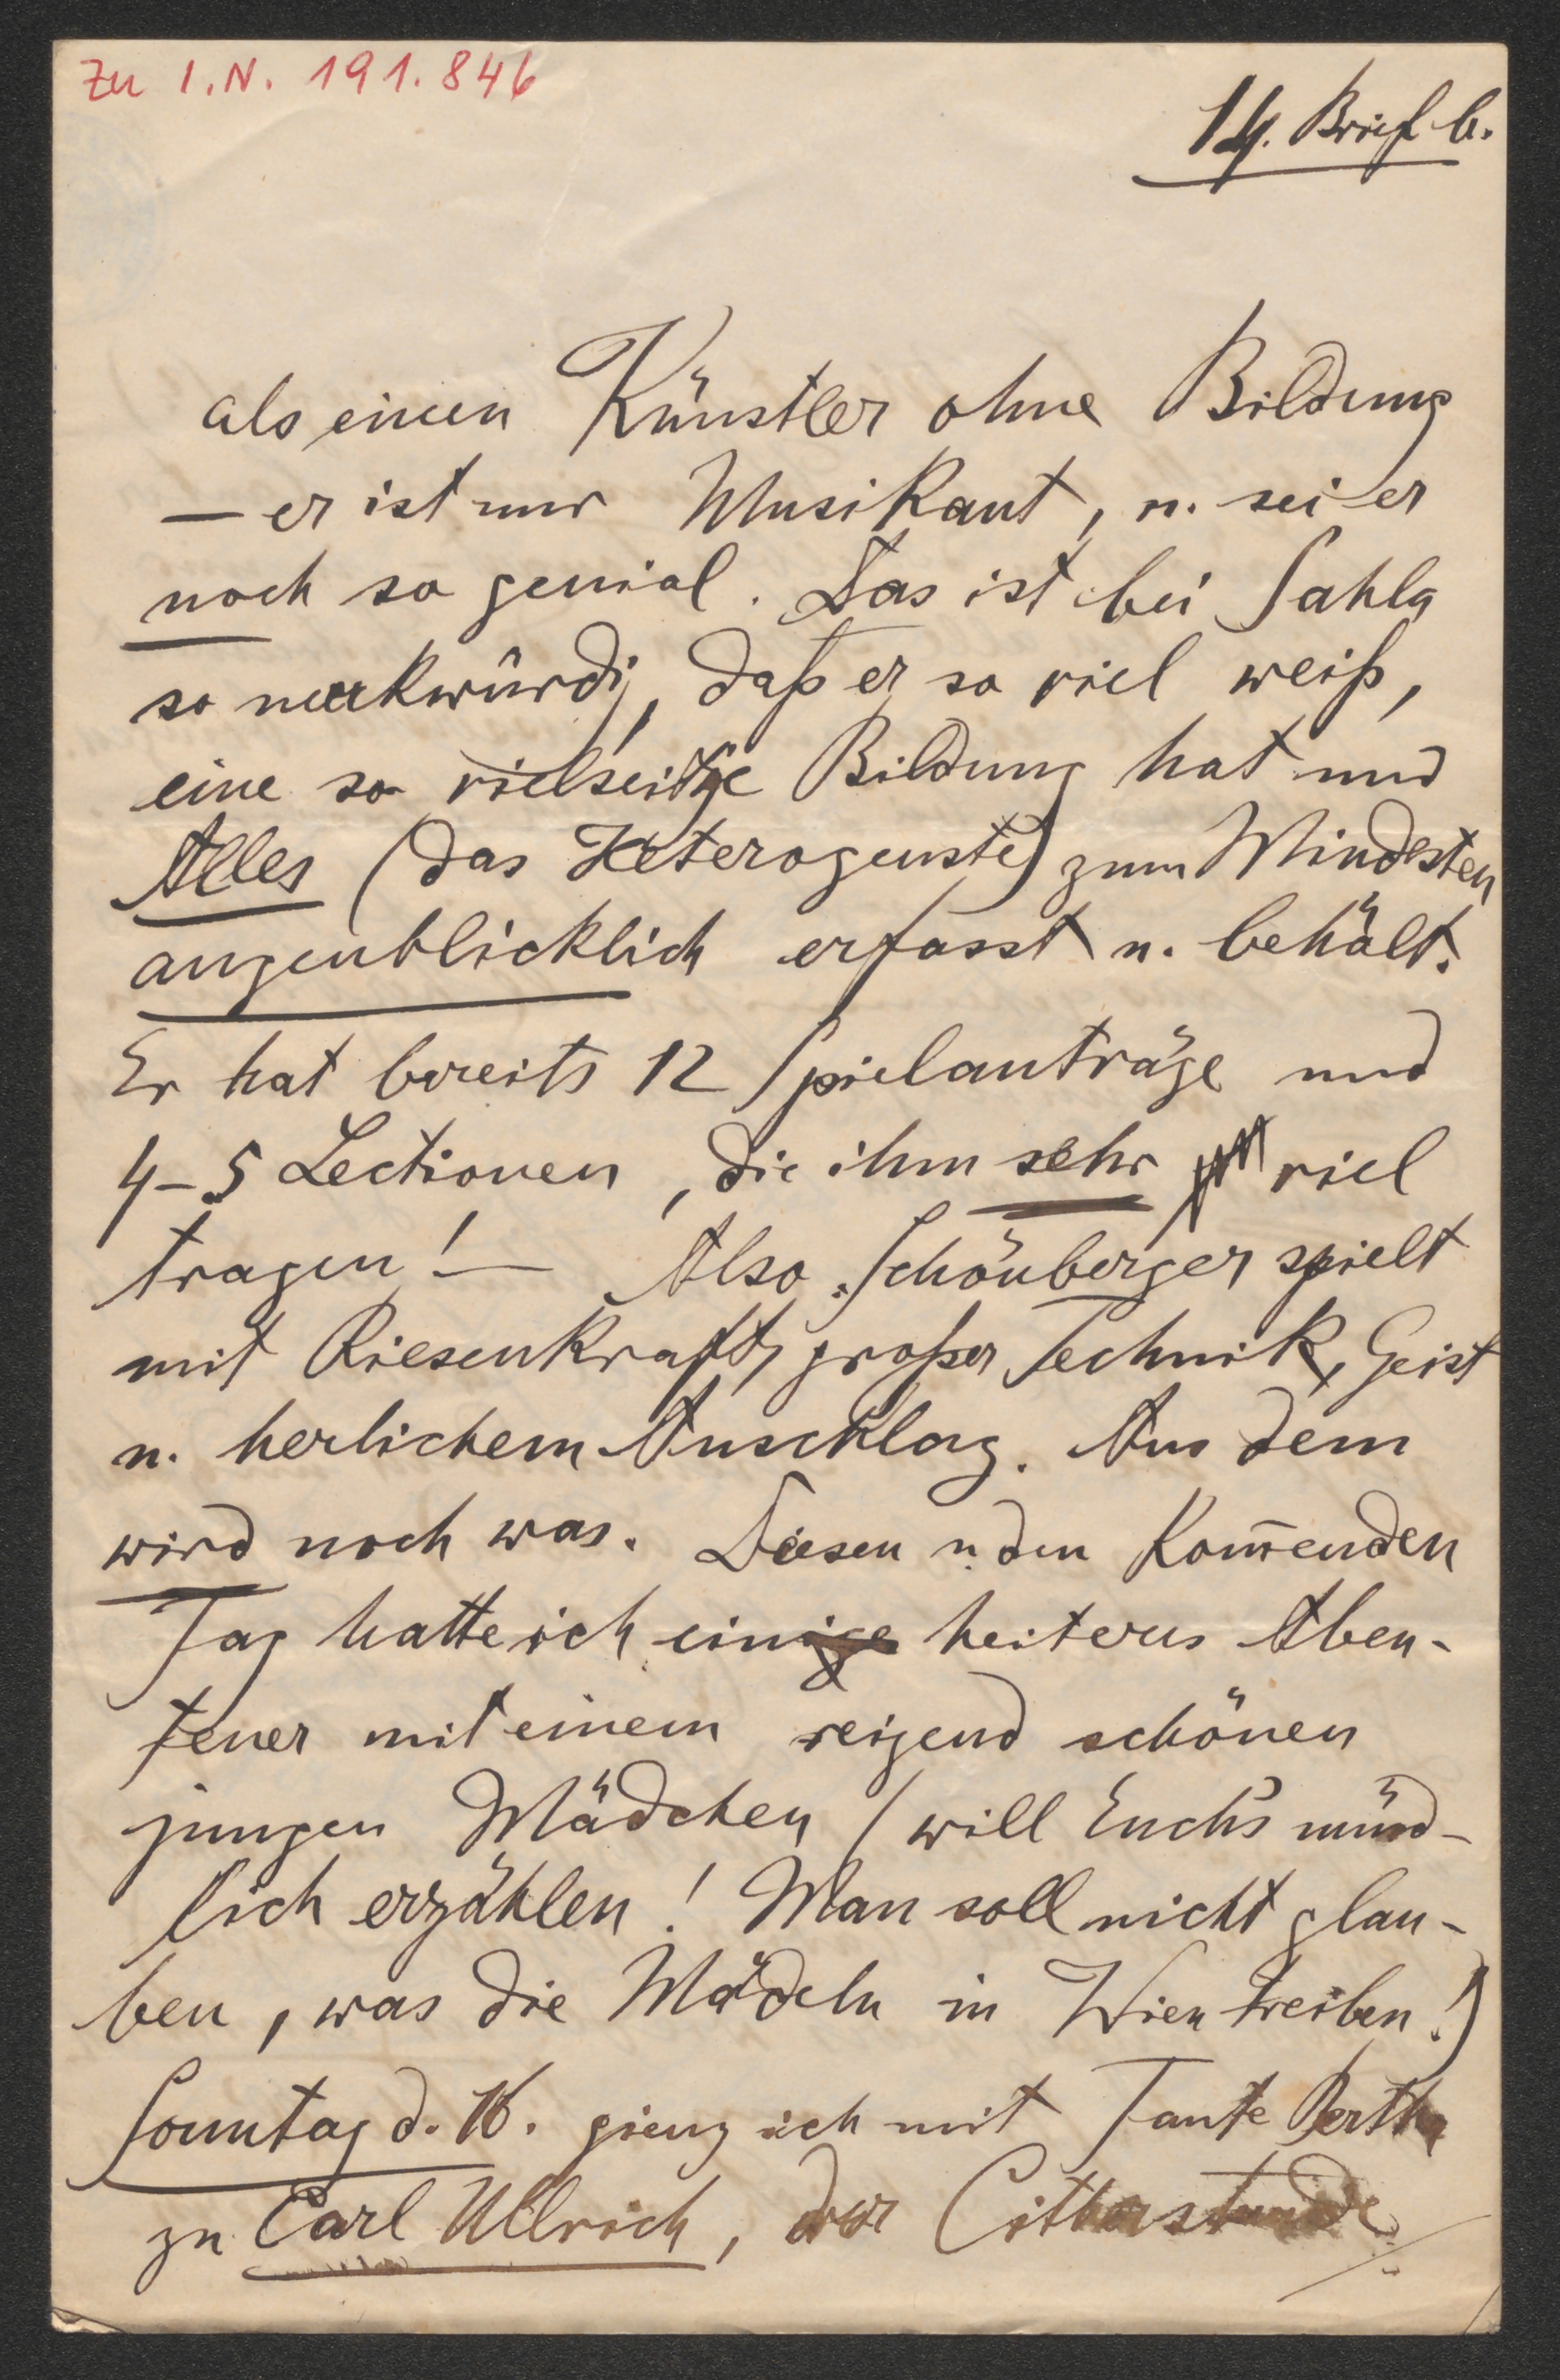 Zu I.N. 191.846
14. Brief b.
als einen Künstler ohne Bildung
– er ist nur Musikant, u. sei er
noch so genial. Das ist bei Sahla
so merkwürdig, daß er so viel weiß,
eine so vielseitige Bildung hat und
Alles (das Heterogenste) zum Mindesten
augenblicklich erfasst u. behält.
Er hat bereits 12 Spielanträge und
4–5 Lectionen, die ihm sehr viel
tragen! – Also Schönberger spielt
mit Riesenkraft, großer Technik, Geist
u. herlichem Anschlag. Aus dem
wird noch was. Diesen u. den Kom̅enden
Tag hatte ich einige heiteres Aben-
teuer mit einem reizend schönen
jungen Mädchen (will Euch's münd-
lich erzählen! Man soll nicht glau-
ben, was die Mädeln in Wien treiben!)
Sonntag d. 16. gieng ich mit Tante Bertha
zu Carl Ullrich, der Citherstunde